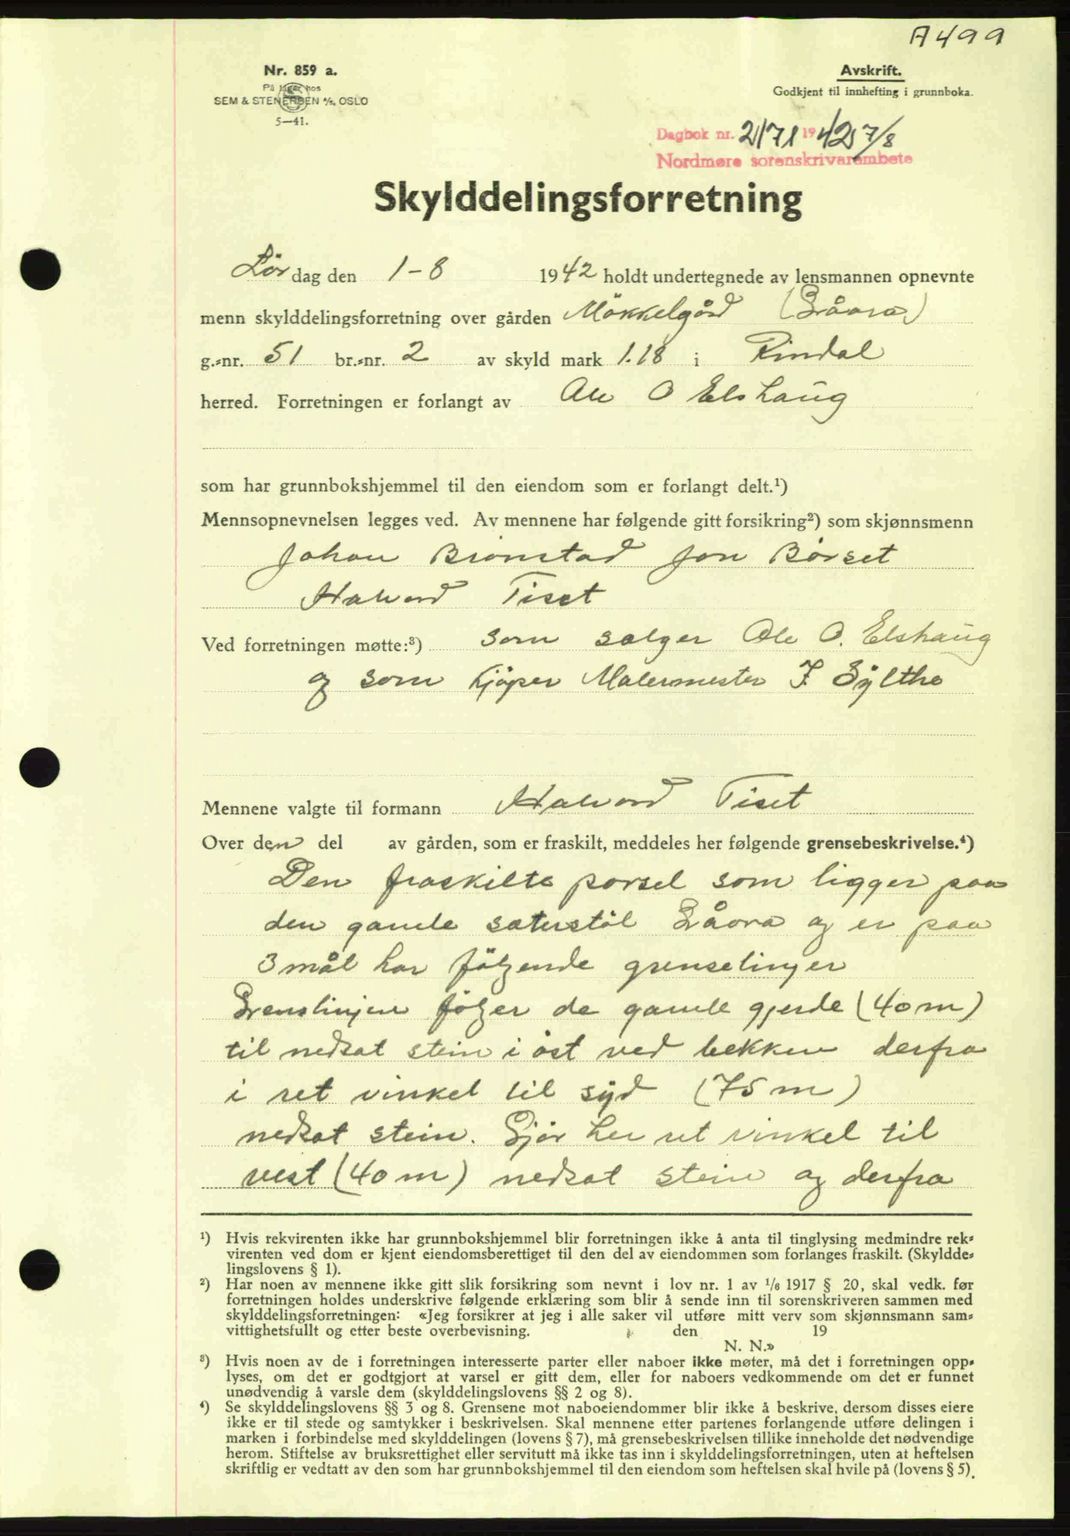 A499
Nr. 859 a.
På lager hos
SEM & STENERSEN A/S, OSLO
5—41.
Avskrift.
Godkjent til innhefting i grunnboka.
Dagbok nr. 2171 1942 7/8
Nordmøre sorenskrivarembete
Skylddelingsforretning
Lør dag den 1-8 1942 holdt undertegnede av lensmannen opnevnte
menn skylddelingsforretning over gården Mökkelgård (Gråora)
g.-nr. 51 br.-nr. 2 av skyld mark 1.18 i Rindal
herred. Forretningen er forlangt av Ole O Elshaug
som har grunnbokshjemmel til den eiendom som er forlangt delt.¹)
Mennsopnevnelsen legges ved. Av mennene har følgende gitt forsikring²) som skjønnsmenn
Johan Brønstad Jon Børset
Halvord Tiset
Ved forretningen møtte:³) som selger Ole O. Elshaug
og som kjöper Malermester J. Sylthe
Mennene valgte til formann Halvord Tiset
Over den del av gården, som er fraskilt, meddeles her følgende grensebeskrivelse.⁴)
Den fraskilte parsel som ligger paa
den gamle sæterstöl Gråora og er paa
3 mål har fölgende grenselinjer
Grenslinjen fölger de gamle gjerde (40 m)
til nedsat stein i öst ved bekken derfra
i ret vinkel til syd (75 m)
nedsat stein. Gjör her ret vinkel til
vest (40 m) nedsat stein og derfra
¹) Hvis rekvirenten ikke har grunnbokshjemmel blir forretningen ikke å anta til tinglysing medmindre rek-
virenten ved dom er kjent eiendomsberettiget til den del av eiendommen som forlanges fraskilt. (Skyldde-
lingslovens § 1).
²) Har noen av mennene ikke gitt slik forsikring som nevnt i lov nr. 1 av ¹/₆ 1917 § 20, skal vedk. før
forretningen holdes underskrive følgende erklæring som blir å sende inn til sorenskriveren sammen med
skylddelingsforretningen: «Jeg forsikrer at jeg i alle saker vil utføre mitt verv som skjønnsmann sam-
vittighetsfullt og etter beste overbevisning. den 19
N. N.»
³) Hvis noen av de i forretningen interesserte parter eller naboer ikke møter, må det i forretningen opp-
lyses, om det er godtgjort at varsel er gitt dem, eller for naboers vedkommende om det er funnet
unødvendig å varsle dem (skylddelingslovens §§ 2 og 8).
⁴) Se skylddelingslovens §§ 3 og 8. Grensene mot naboeiendommer blir ikke å beskrive, dersom disses eiere
ikke er til stede og samtykker i beskrivelsen. Skal mennene etter partenes forlangende utføre delingen i
marken i forbindelse med skylddelingen (lovens § 7), må grensebeskrivelsen tillike inneholde det nødvendige
herom. Stiftelse av bruksrettighet eller servitutt må ikke tas inn i skylddelingsforretningen, uten at heftelsen
skriftlig er vedtatt av den som har grunnbokshjemmel til den eiendom som heftelsen skal hvile på (lovens § 5).